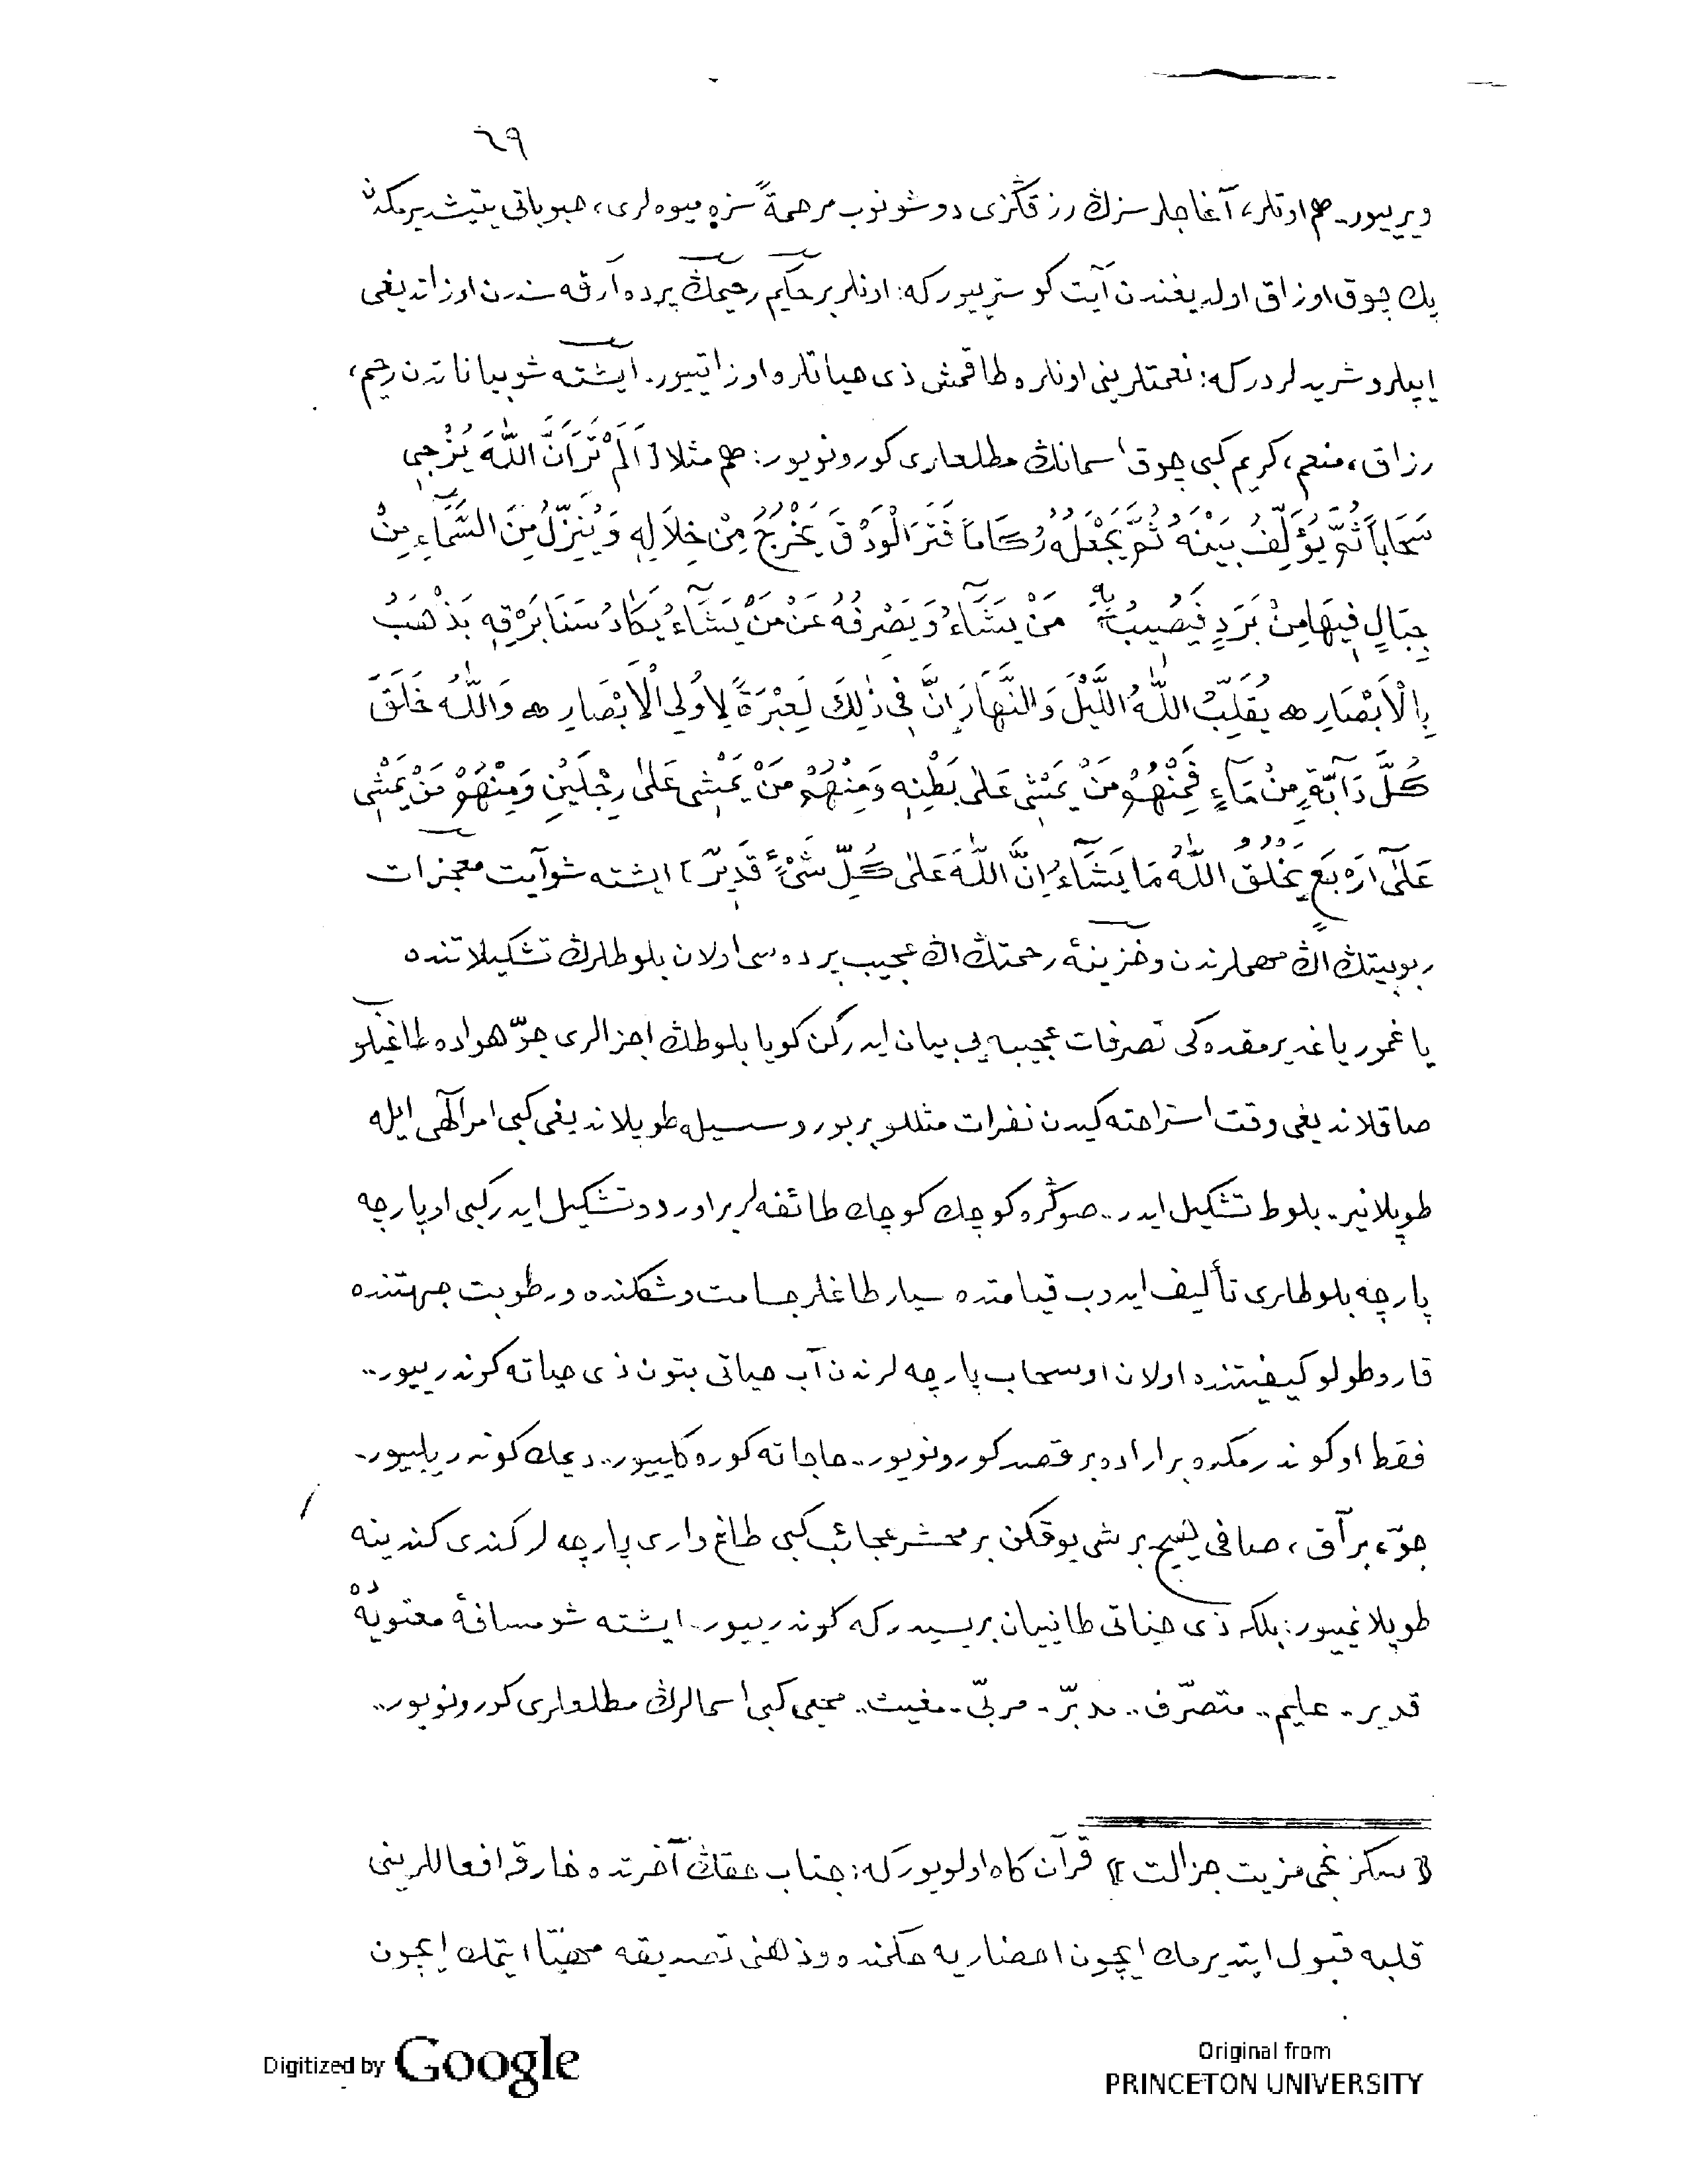 ٦٩
ویریيور. هم اوتلر، آغاجلر سزڭ رزقڭزی دوشونوب مرحمةً سزه میوه‌لری، حبوباتی یتیشدیرمكدن
پك چوق اوزاق اولدیغندن آیت كوسترییور كه: اونلر بر حكیم رحیمڭ پرده آرقه‌سندن اوزاتدیغی
ایپلر و شریدلردر كه: نعمتلرینی اونلره طاقمش ذی حیاتلره اوزاتییور. ایشته شو بیاناتدن رحیم،
رزاق، منعم، كریم كبی چوق اسمانڭ مطلعلری كورونویور: هم مثلا ﴿ اَلَمْ تَرَ اَنَّ اللّٰهَ يُزْجِى
سَحَاباً ثُمَّ يُؤَلِّفُ بَيْنَهُ ثُمَّ يَجْعَلُهُ رُكَاماً فَتَرَ الْوَدْقَ يَخْرُجُ مِنْ خِلَالِهِ وَيُنَزِّلُ مِنَ السَّمَٓاءِ مِنْ
جِبَالٍ فِيهَا مِنْ بَرَدٍ فَيُصِيبُ بِهِ مَنْ يَشَٓاءُ وَيَصْرِفُهُ عَنْ مَنْ يَشَٓاءُ يَكَادُ سَنَا بَرْقِهِ يَذْهَبُ
بِالْاَبْصَارِ ۞ يُقَلِّبُ اللّٰهُ اللَّيْلَ وَالنَّهَارَ اِنَّ فِى ذٰلِكَ لَعِبْرَةً لِاُولِى الْاَبْصَارِ ۞ وَاللّٰهُ خَلَقَ
كُلَّ دَٓابَّةٍ مِنْ مَٓاءٍ فَمِنْهُمْ مَنْ يَمْشِى عَلٰى بَطْنِهِ وَمِنْهُمْ مَنْ يَمْشِى عَلٰى رِجْلَيْنِ وَمِنْهُمْ مَنْ يَمْشِى
عَلٰٓى اَرْبَعٍ يَخْلُقُ اللّٰهُ مَا يَشَٓاءُ اِنَّ اللّٰهَ عَلٰى كُلِّ شَىْءٍ قَدِيرٌ ﴾ ایشته شو آیت معجزات
ربوبیتڭ اڭ مهملرندن و خزینهٔ رحمتڭ اڭ عجیب پرده‌سی اولان بلوطلرڭ تشكیلاتنده
یاغمور یاغدیرمقده‌كی تصرفات عجیبه‌یی بیان ایدركن كویا بلوطڭ اجزالری جوّ هواده طاغیلوب
صاقلاندیغی وقت استراحته كیدن نفرات مثللو بر بوروسسیله طوپلاندیغی كبی امر الٓهی ایله
طوپلانیر. بلوط تشكیل ایدر.. صوڭره كوچك كوچك طائفه‌لر بر اوردو تشكیل ایدر كبی او پارچه
پارچه بلوطلری تألیف ایدوب قیامتده سیار طاغلر جسامت و شكلنده و رطوبت جهتنده
قار و طولو كیفیتنده اولان او سحاب پارچه‌لرندن آب حیاتی بتون ذی حیاته كوندرییور..
فقط او كوندرمكده بر اراده بر قصد كورونویور.. حاجاته كوره كلییور.. دیمك كوندریلییور.
جوّ، برّاق، صافی هیچ بر شی یوقكن بر محشر عجائب كبی طاغ‌واری پارچه‌لر كندی كندینه
طوپلانمییور: بلكه ذی حیاتی طانییان بریسیدر كه كوندرییور.. ایشته شو مسافهٔ معنویه‌ده
قدیر. علیم.. متصرّف.. مدبّر. مربّی. مغیث.. محیی كبی اسمالرڭ مطلعلری كورونویور..
﴿ سكزنجی مزیت جزالت ﴾ قرآن كاه اولویور كه: جناب حقڭ آخرتده خارقه افعاللرینی
قلبه قبول ایتدیرمك ایچون احضاریه حكمنده و ذهنی تصدیقه مهیّا ایتمك ایچون
Digitized by Google
Original from
PRINCETON UNIVERSITY